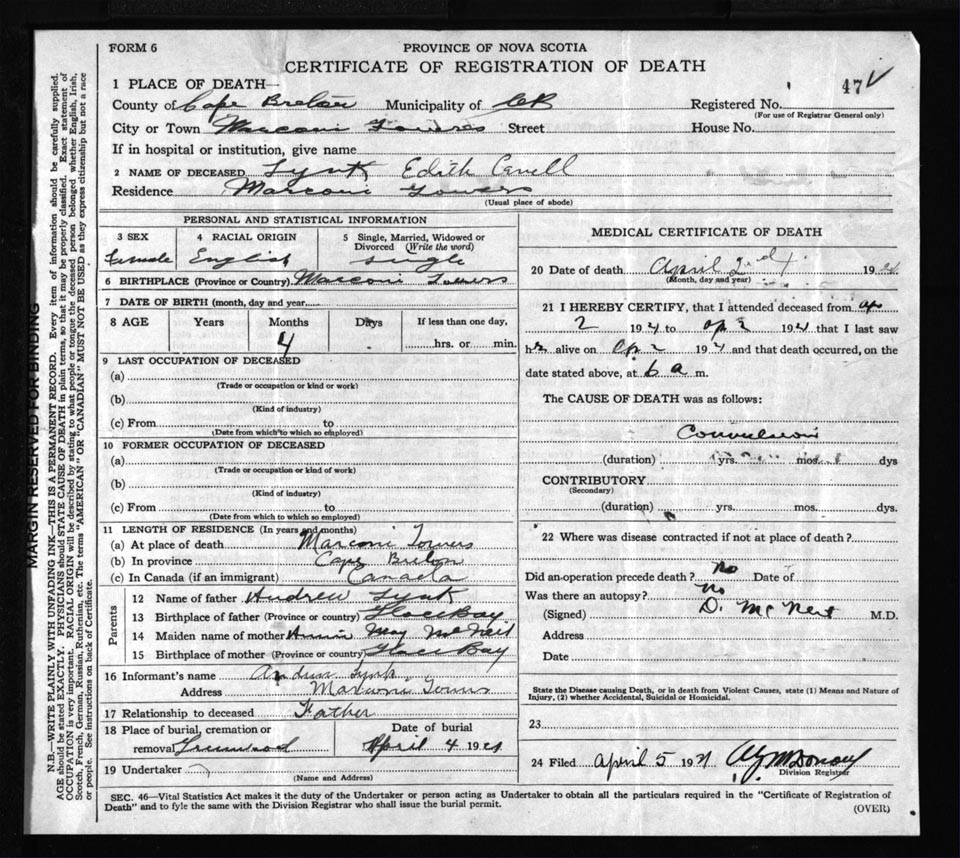 FORM 6
PROVINCE OF NOVA SCOTIA
CERTIFICATE OF REGISTRATION OF DEATH
1 PLACE OF DEATH—
County of Cape Breton Municipality of CB Registered No. 47
(For use of Registrar General only)
City or Town Marconi Towers Street House No.
If in hospital or institution, give name
2 NAME OF DECEASED Lynk Edith Cavell
Residence Marconi Towers
(Usual place of abode)
PERSONAL AND STATISTICAL INFORMATION
3 SEX 4 RACIAL ORIGIN 5 Single, Married, Widowed or Divorced (Write the word)
Female English single
6 BIRTHPLACE (Province or Country) Marconi Towers
7 DATE OF BIRTH (month, day and year)
8 AGE Years Months Days If less than one day,
4 hrs. or min.
9 LAST OCCUPATION OF DECEASED
(a)
(Trade or occupation or kind or work)
(b)
(Kind of industry)
(c) From to
(Date from which to which so employed)
10 FORMER OCCUPATION OF DECEASED
(a)
(Trade or occupation or kind of work)
(b)
(Kind of industry)
(c) From to
(Date from which to which so employed)
11 LENGTH OF RESIDENCE (In years and months)
(a) At place of death Marconi Towers
(b) In province Cape Breton
(c) In Canada (if an immigrant) Canada
Parents
12 Name of father Andrew Lynk
13 Birthplace of father (Province or country) Glace Bay
14 Maiden name of mother Annie May McNeil
15 Birthplace of mother (Province or country) Glace Bay
16 Informant's name Andrew Lynk
Address Marconi Towers
17 Relationship to deceased Father
18 Place of burial, cremation or removal Date of burial
Greenwood April 4 1921
19 Undertaker
(Name and Address)
MEDICAL CERTIFICATE OF DEATH
20 Date of death April 2nd 19
(Month, day and year)
21 I HEREBY CERTIFY, that I attended deceased from ap
2 1921 to ap 2 1921 that I last saw
h alive on ap 2 1921 and that death occurred, on the
date stated above, at 6 a m.
The CAUSE OF DEATH was as follows:
Convulsions
(duration) yrs. mos. dys
CONTRIBUTORY
(Secondary)
(duration) yrs. mos. dys.
22 Where was disease contracted if not at place of death?
Did an operation precede death? no Date of
Was there an autopsy? no
(Signed) D. McNeil M.D.
Address
Date
State the Disease causing Death, or in death from Violent Causes, state (1) Means and Nature of
Injury, (2) whether Accidental, Suicidal or Homicidal.
23
24 Filed April 5 1921
Division Registrar
SEC. 46—Vital Statistics Act makes it the duty of the Undertaker or person acting as Undertaker to obtain all the particulars required in the "Certificate of Registration of
Death" and to fyle the same with the Division Registrar who shall issue the burial permit.
(OVER)
MARGIN RESERVED FOR BINDING
N.B.—WRITE PLAINLY WITH UNFADING INK—THIS IS A PERMANENT RECORD. Every item of information should be carefully supplied.
AGE should be stated EXACTLY. PHYSICIANS should STATE CAUSE OF DEATH in plain terms, so that it may be properly classified. Exact statement of
OCCUPATION is very important. RACIAL ORIGIN will be described by stating to what people or tongue the deceased person belonged whether English, Irish,
Scotch, French, German, Russian, Ruthenian, etc. The terms "AMERICAN" OR "CANADIAN" MUST NOT BE USED as they express citizenship but not a race
or people. See instructions on back of Certificate.